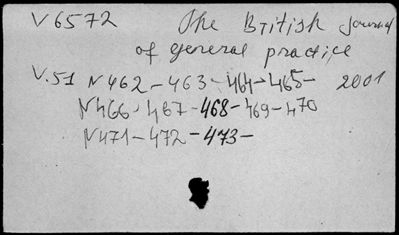 V 6572 The British Journal
of general practice
V.51 N 462 - 463 - 464 - 465 - 2001
N 466 - 467 - 468 - 469 - 470
N 471 - 472 - 473 -